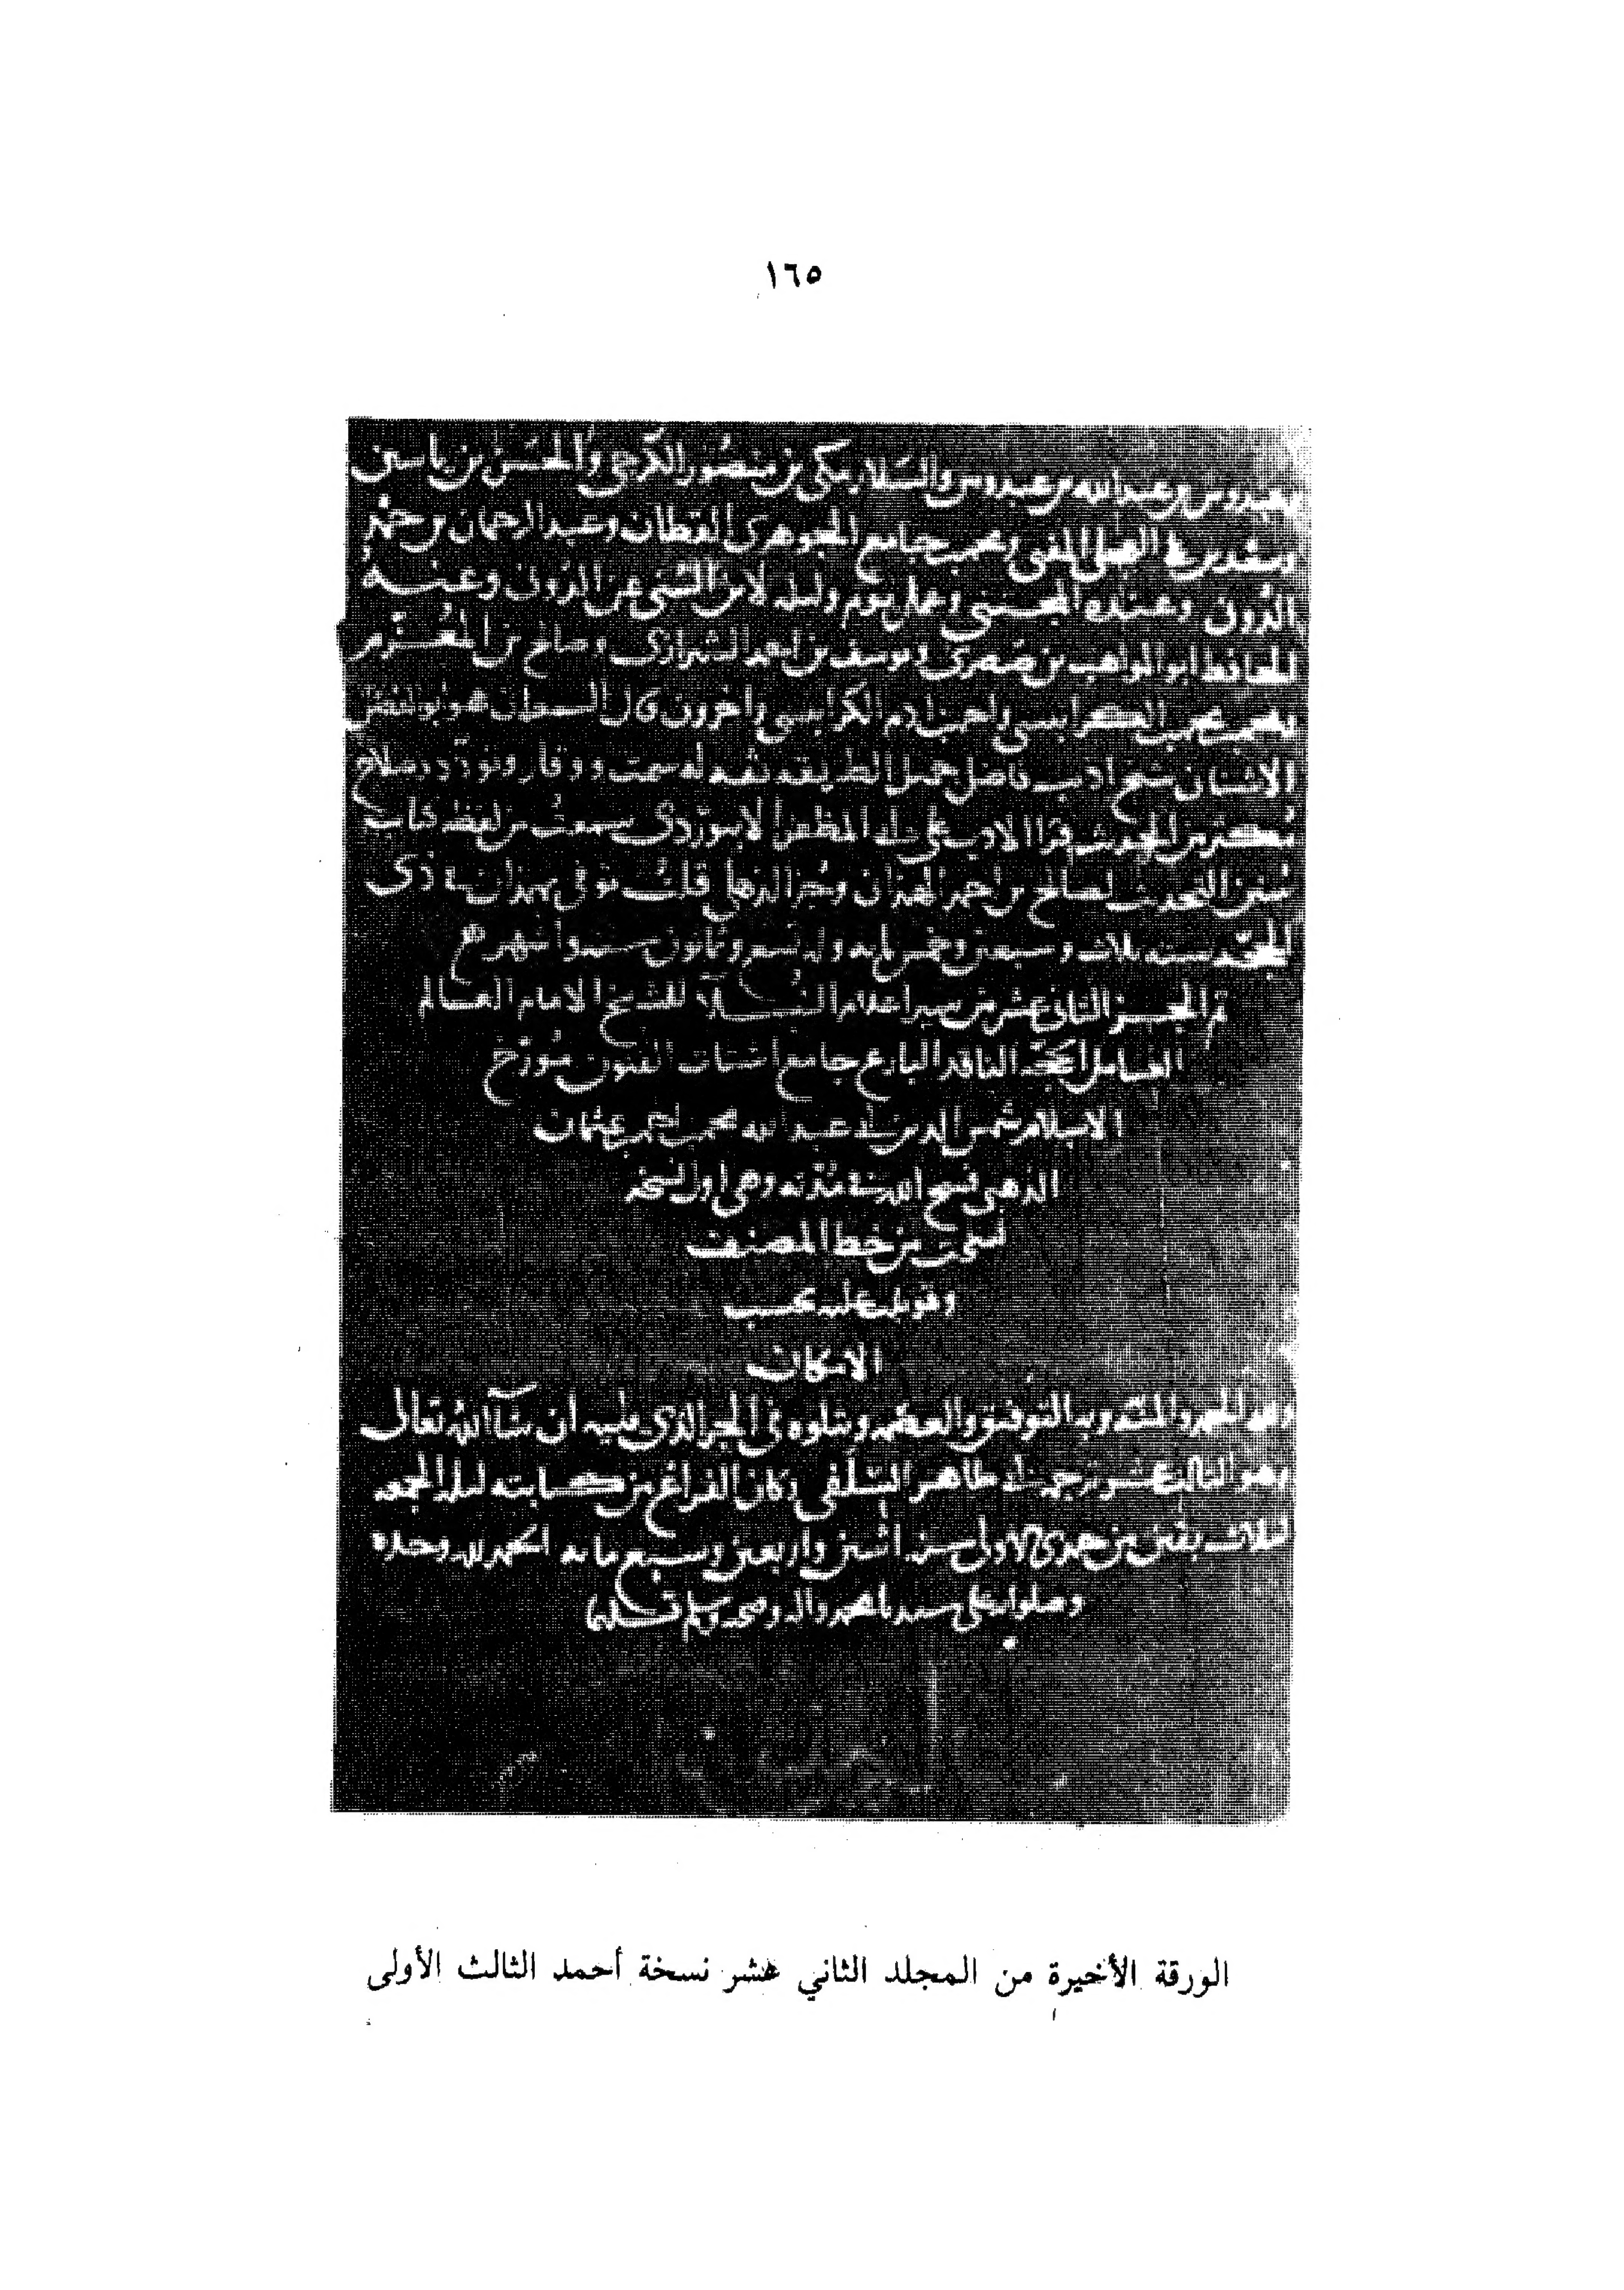 ١٦٥
عبدوس وعبد الله بن عبدوس والسلار مكي بن منصور الكرجي والحسن بن ياسين
الجوهري القطان وعبد الرحمان بن حمد
الدوني
الحافظ ابو المواهب بن صصرى ويوسف بن احمد الشيرازي وصالح بن المعزم
الكرابيسي واخرون قال السمعاني هو ابو الفضل
شيخ اديب فاضل جميل الطريقة له سمت ووقار وتودد وصلاح
مكثر من الحديث قرا الادب على المظفر الابيوردي سمعت من لفظه كتاب
سنن التحديث لصالح بن احمد الهمذاني قلت توفي بهمذان في ذي
الحجه سنه ثلاث وسبعين وخمس مايه وله تسع وثمانون سنه واشهر
تم الجزء الثاني عشر من سير اعلام النبلاء للشيخ الامام العالم
العامل الحجه الناقد البارع جامع اشتات الفنون مؤرخ
الاسلام شمس الدين ابي عبد الله محمد بن احمد بن عثمان
الذهبي فسح الله في مدته وهي اول نسخه
نسخت من خط المصنف
وقوبلت عليه بحسب
الامكان
ولله الحمد والمنه وبه التوفيق والعصمه ويتلوه في الجزء الذي يليه ان شآ الله تعالى
وهو الثالث عشر ترجمة ابي طاهر السلفي وكان الفراغ من كتابته ليلة الجمعه
لثلاث بقين من جمدى الاولى سنة اثنين واربعين وسبع مائه الحمد لله وحده
وصلواته على سيدنا محمد واله وصحبه وسلم تسليما
الورقة الأخيرة من المجلد الثاني عشر نسخة أحمد الثالث الأولى